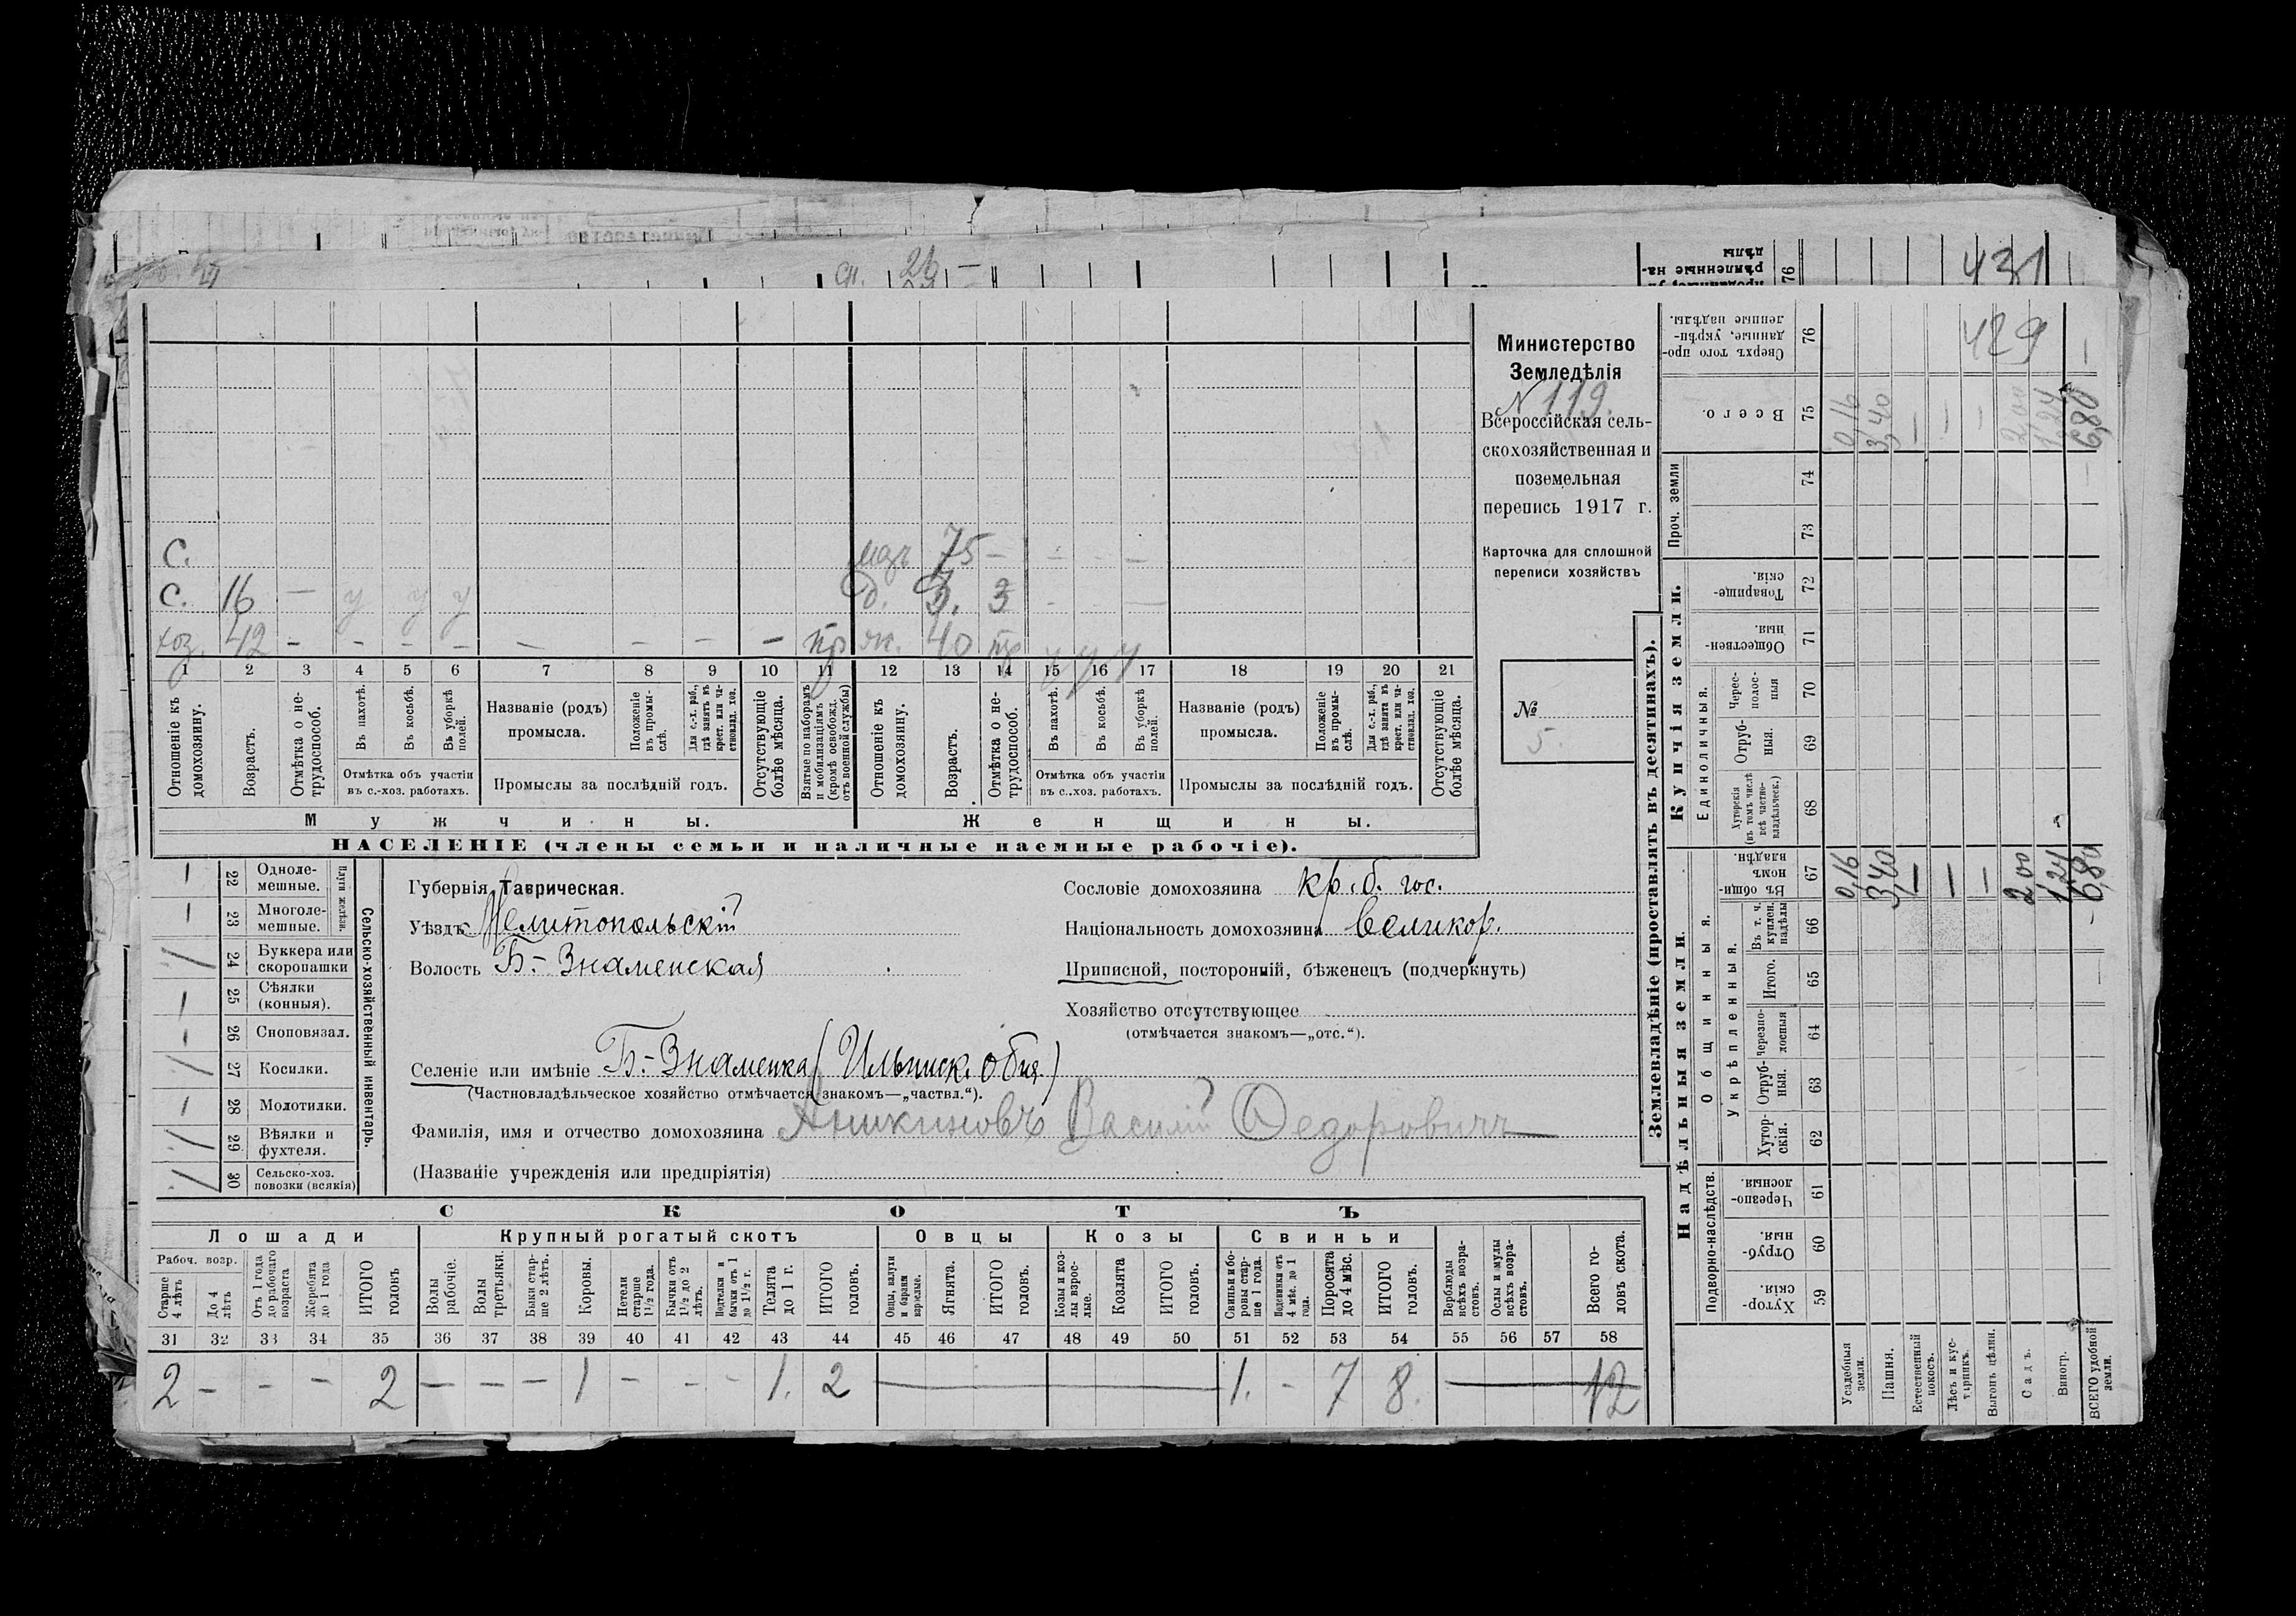 431
Министерство
Земледѣлія
N 119.
Всероссійская сель-
скохозяйственная и
поземельная
перепись 1917 г.
Карточка для сплошной
переписи хозяйствъ
№
5.
С. 75 — — — —
С. 16 — у у у д. 3. 3 - - —
хоз. 42 — — — — — — — — пр 40 у у у
1 2 3 4 5 6 7 8 9 10 11 12 13 14 15 16 17 18 19 20 21
Отношеніе къ домохозяину.
Возрастъ.
Отмѣтка о не-трудоспособ.
Въ пахотѣ.
Въ косьбѣ.
Въ уборкѣ полей.
Отмѣтка объ участіи
въ с.-хоз. работахъ.
Названіе (родъ)
промысла.
Положеніе въ промы-слѣ.
Для с.-х. раб., гдѣ занятъ въ крест. или ча-стновлад. хоз.
Промыслы за послѣдній годъ.
Отсутствующіе болѣе мѣсяца.
Взятые по наборамъ и мобилизаціямъ (кромѣ освобожд. отъ военной службы)
Отношеніе къ домохозяину.
Возрастъ.
Отмѣтка о не-трудоспособ.
Въ пахотѣ.
Въ косьбѣ.
Въ уборкѣ полей.
Отмѣтка объ участіи
въ с..хоз. работахъ.
Названіе (родъ)
промысла.
Положеніе въ промы-слѣ.
Для с.-х. раб., гдѣ занята въ крест. или ча-стновлад. хоз.
Промыслы за послѣдній годъ.
Отсутствующіе болѣе мѣсяца.
Мужчины. Женщины.
НАСЕЛЕНІЕ (члены семьи и наличные наемные рабочіе).
Сельско-хозяйственный инвентарь.
Плуги желѣзн.
22 Одноле-мешные.
23 Многоле-мешные.
24 Буккера или скоропашки
25 Сѣялки (конныя).
26 Сноповязал.
27 Косилки.
28 Молотилки.
29 Вѣялки и фухтеля.
30 Сельско-хоз. повозки (всякія)
Губернія Таврическая.
Уѣздъ Мелитопольскій
Волость Б.-Знаменская
Сословіе домохозяина кр. б. гос.
Національность домохозяина великор.
Приписной, посторонній, бѣженецъ (подчеркнуть)
Хозяйство отсутствующее
(отмѣчается знакомъ—„отс.“).
Селеніе или имѣніе Б.-Знаменка (Ильинск. общ.)
(Частновладѣльческое хозяйство отмѣчается знакомъ—„частвл.“).
Фамилія, имя и отчество домохозяина Аникиновъ Василій Федоровичъ
(Названіе учрежденія или предпріятія)
СКОТЪ
Лошади Крупный рогатый скотъ Овцы Козы Свиньи
Рабоч. возр.
Старше 4 лѣтъ
До 4 лѣтъ
Отъ 1 года до рабочаго возраста
Жеребята до 1 года
ИТОГО головъ
Волы рабочіе.
Волы третьяки.
Быки стар-ше 2 лѣтъ.
Коровы.
Нетели старше 1½ года.
Бычки отъ 1½ до 2 лѣтъ.
Подтелки и бычки отъ 1 до 1½ г.
Телята до 1 г.
ИТОГО головъ.
Овцы, валухи и бараны взрослые.
Ягнята.
ИТОГО головъ.
Козы и коз-лы взрос-лые.
Козлята
ИТОГО головъ.
Свиньи и бо-ровы стар-ше 1 года.
Подсвинки отъ 4 мѣс. до 1 года.
Поросята до 4 мѣс.
ИТОГО головъ.
Верблюды всѣхъ возра-стовъ.
Ослы и мулы всѣхъ возра-стовъ.
Всего го-ловъ скота.
31 32 33 34 35 36 37 38 39 40 41 42 43 44 45 46 47 48 49 50 51 52 53 54 55 56 57 58
2 — — — 2 — — — 1 — — — 1. 2 — 1. — 7 8. — 12
Землевладѣніе (проставлять въ десятинахъ).
Надѣльныя земли.
Купчія земли.
Проч. земли
Подворно-наслѣдств.
Общинныя.
Укрѣпленныя.
Единоличныя.
Хутор-скія. 59
Отруб-ныя. 60
Черезпо-лосныя. 61
Хутор-скія. 62
Отруб-ныя. 63
Черезпо-лосныя 64
Итого. 65
Въ т. ч. куплен. надѣлы 66
Въ общи-номъ владѣн. 67
Хуторскія (въ томъ числѣ всѣ частно-владѣльческ.) 68
Отруб-ныя. 69
Черес-полос-ныя 70
Обществен-ныя. 71
Товарище-скія. 72
73
74
Всего. 75
Сверхъ того про-данные, укрѣп-ленные надѣлы. 76
429
Усадебныя земли. 0,16 0,16
Пашня. 3,40 3,40
Естественный покосъ. — —
Лѣсъ и кус-тарникъ. — —
Выгонъ цѣлин. — —
Садъ. 2,00 2,00
Виногр. 1,24 1,24
ВСЕГО удобной земли. 6,80 6,80